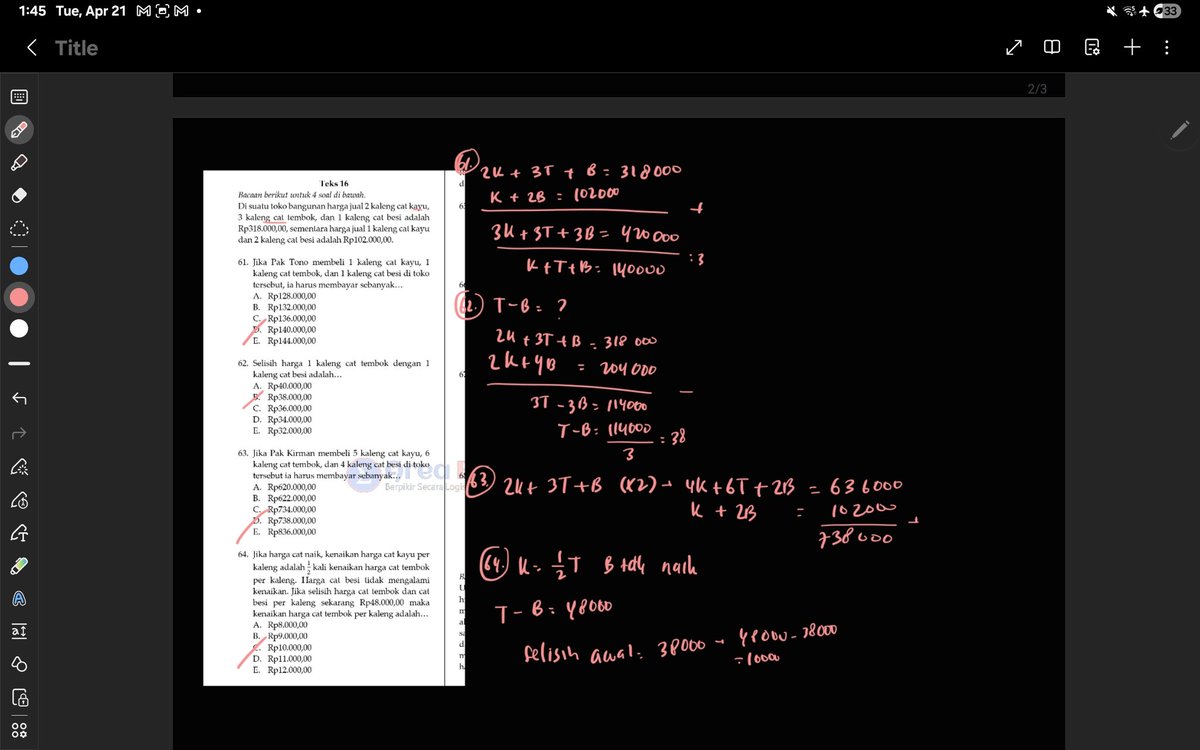 1:45 Tue, Apr 21
33
Title
2/3
Teks 16
Bacaan berikut untuk 4 soal di bawah.
Di suatu toko bangunan harga jual 2 kaleng cat kayu,
3 kaleng cat tembok, dan 1 kaleng cat besi adalah
Rp318.000,00, sementara harga jual 1 kaleng cat kayu
dan 2 kaleng cat besi adalah Rp102.000,00.
61. Jika Pak Tono membeli 1 kaleng cat kayu, 1
kaleng cat tembok, dan 1 kaleng cat besi di toko
tersebut, ia harus membayar sebanyak...
A. Rp128.000,00
B. Rp132.000,00
C. Rp136.000,00
D. Rp140.000,00
E. Rp144.000,00
62. Selisih harga 1 kaleng cat tembok dengan 1
kaleng cat besi adalah...
A. Rp40.000,00
B. Rp38.000,00
C. Rp36.000,00
D. Rp34.000,00
E. Rp32.000,00
63. Jika Pak Kirman membeli 5 kaleng cat kayu, 6
kaleng cat tembok, dan 4 kaleng cat besi di toko
tersebut ia harus membayar sebanyak...
A. Rp620.000,00
B. Rp622.000,00
C. Rp734.000,00
D. Rp738.000,00
E. Rp836.000,00
Berpikir Secara Logi
64. Jika harga cat naik, kenaikan harga cat kayu per
kaleng adalah 1/2 kali kenaikan harga cat tembok
per kaleng. Harga cat besi tidak mengalami
kenaikan. Jika selisih harga cat tembok dan cat
besi per kaleng sekarang Rp48.000,00 maka
kenaikan harga cat tembok per kaleng adalah...
A. Rp8.000,00
B. Rp9.000,00
C. Rp10.000,00
D. Rp11.000,00
E. Rp12.000,00
61. 2K + 3T + B = 318000
K + 2B = 102000
+
3K + 3T + 3B = 420000
:3
K + T + B = 140000
62. T - B = ?
2K + 3T + B = 318 000
2K + 4B = 204 000
-
3T - 3B = 114000
T - B = 114000/3 = 38
63. 2K + 3T + B (x2) → 4K + 6T + 2B = 636000
K + 2B = 102000
+
738 000
64. K = 1/2 T B tdk naik
T - B = 48000
Selisih awal = 38000 → 48000 - 38000
= 10000